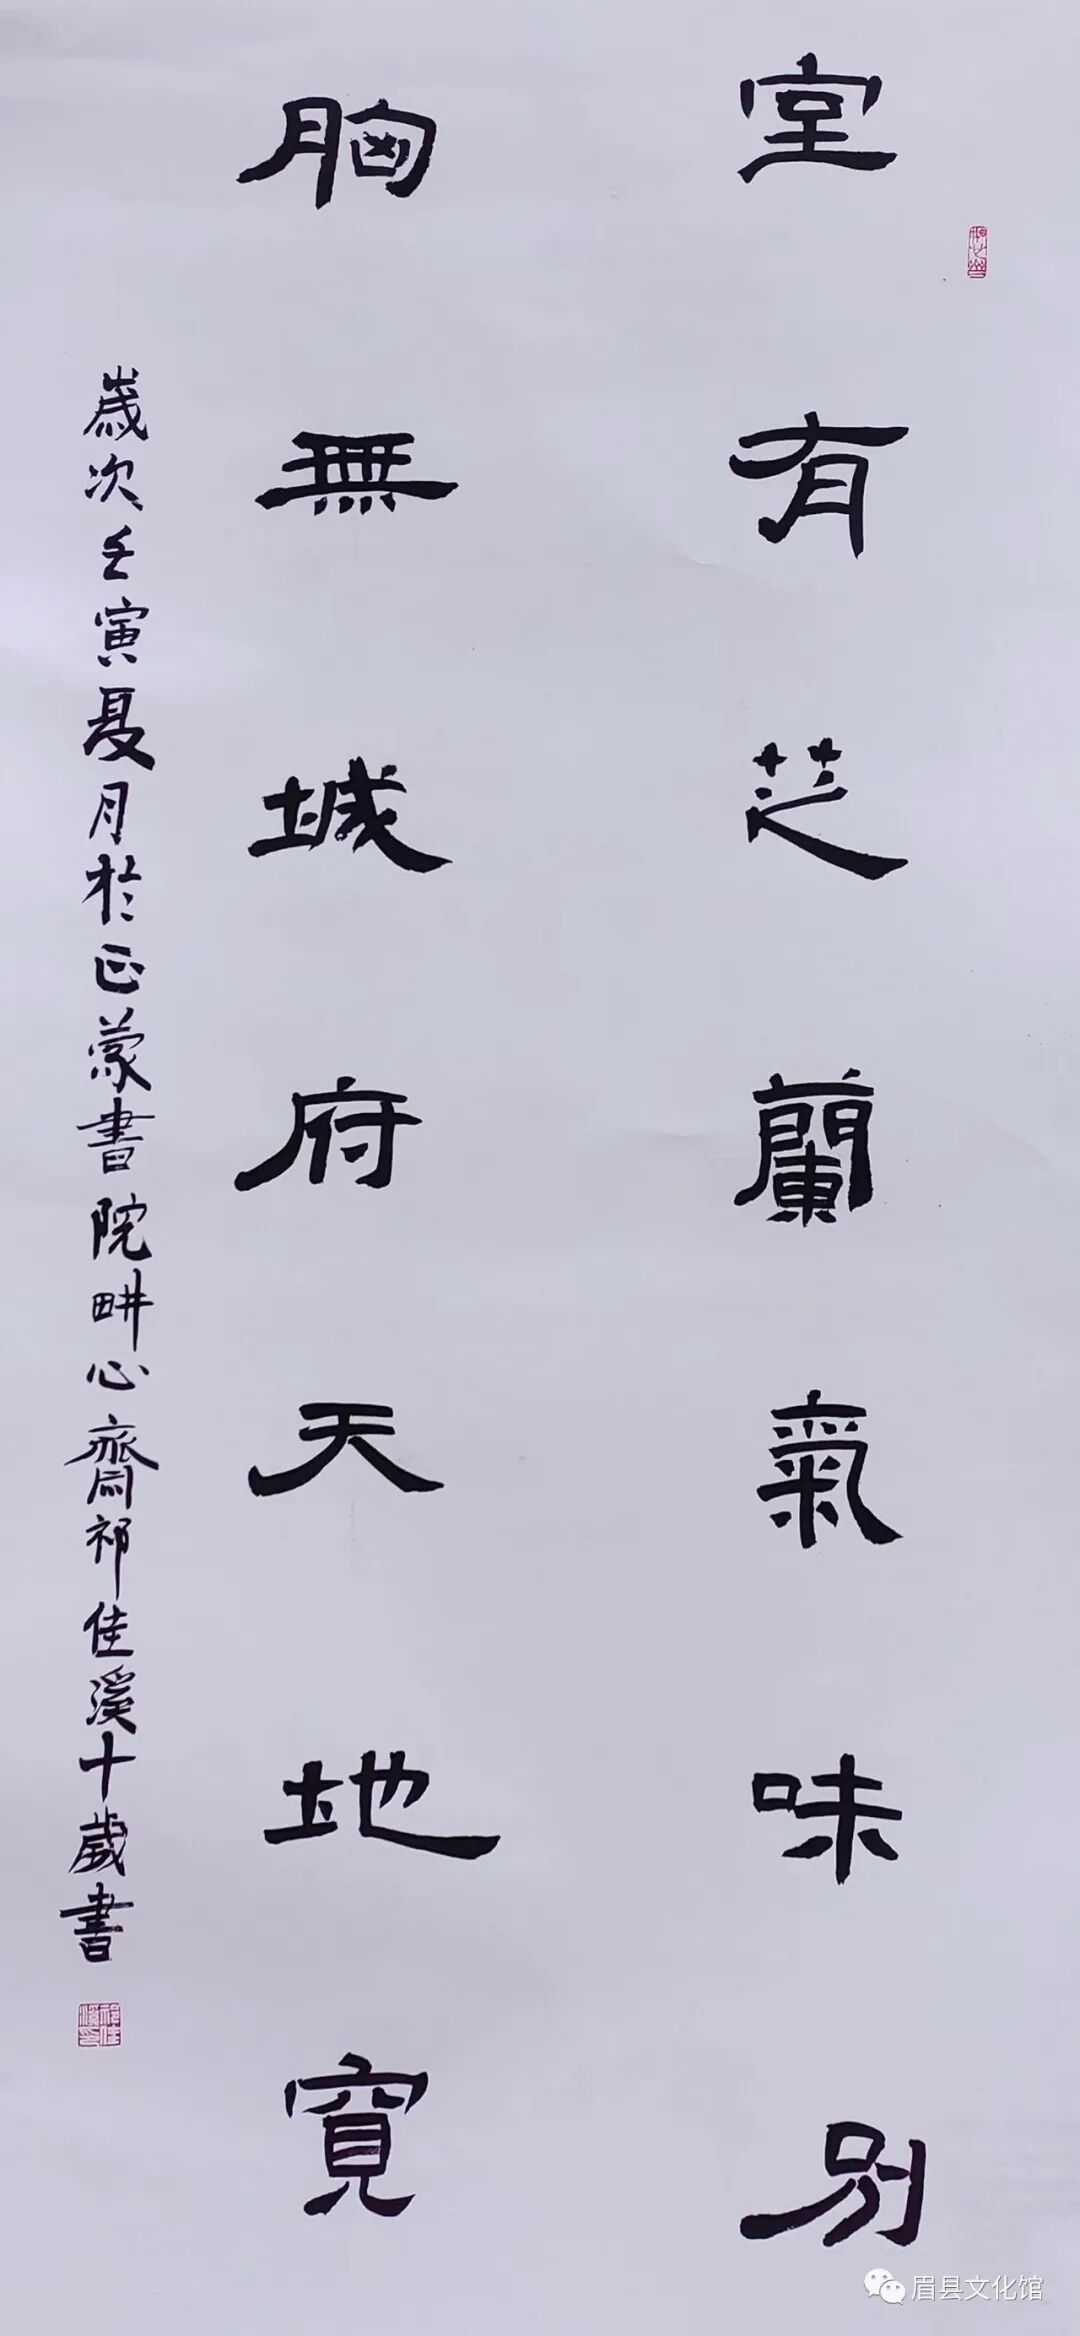 室有芝蘭氣味別
胸無城府天地寬
歲次壬寅夏月於正蒙書院畊心齋祁佳溪十歲書
祁佳溪印
眉县文化馆